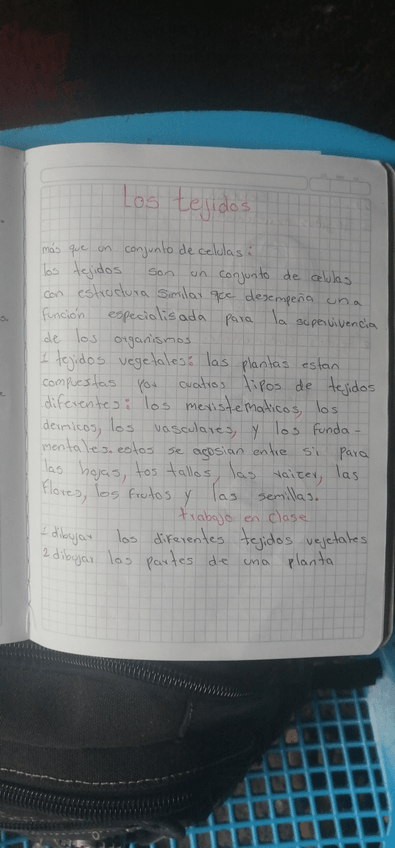 Los tejidos
más que un conjunto de celulas:
los tejidos son un conjunto de celulas
con estructura similar que desempeña una
función especialisada para la supervivencia
de los organismos
1 tejidos vegetales: las plantas estan
compuestas por cuatros tipos de tejidos
diferentes: los meristematicos, los
dermicos, los vasculares, y los funda-
mentales. estos se asosian entre si para
las hojas, los tallos, las raices, las
flores, los frutos y las semillas.
trabajo en clase
1 dibujar los diferentes tejidos vejetales
2 dibujar las partes de una planta